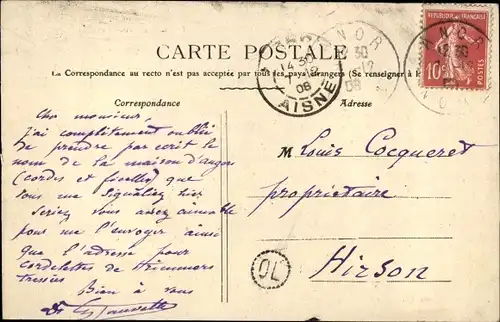 CARTE POSTALE
La Correspondance au recto n'est pas acceptée par tous les pays étrangers (Se renseigner à la
Correspondance
Adresse
Cher monsieur,
j'ai complètement oublié
de prendre par écrit le
nom de la maison d'angers
(cordes et ficelles) que
vous me signaliez hier
seriez vous assez aimable
pour me l'envoyer ainsi
que l'adresse pour
cordelettes de
tressées
Bien à vous
M Louis Cocqueret
propriétaire
Hirson
OL
14 30
08
AISNE
ANOR
30
12
08
ANOR
RÉPUBLIQUE FRANÇAISE
10